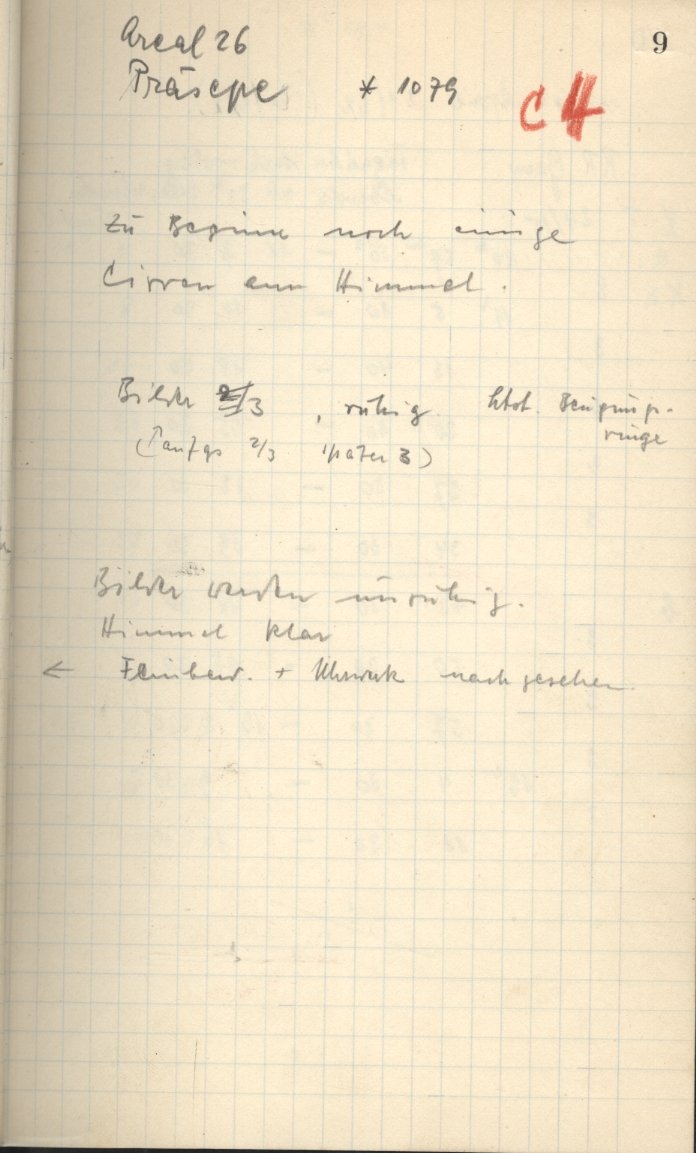 9
Areal 26
Präsepe * 1079
C H
Zu Beginn noch einige
Cirren am Himmel.
Bilder 2/3, ruhig. Beugungs-
ringe
(Anfgs 2/3 später 3)
Bilder werden unruhig.
Himmel klar
← Feinbew. + Uhrwerk nachgesehen.